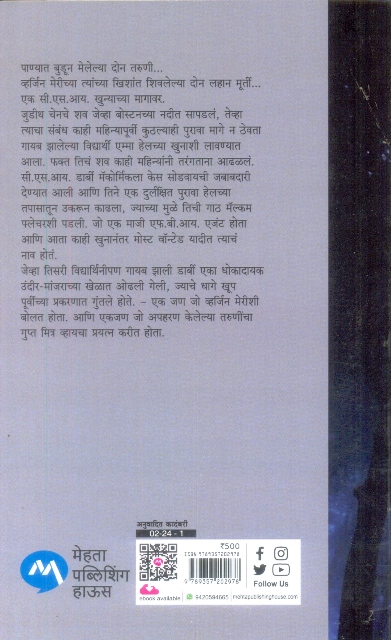 पाण्यात बुडून मेलेल्या दोन तरुणी...
व्हर्जिन मेरीच्या त्यांच्या खिशांत शिवलेल्या दोन लहान मूर्ती...
एक सी.एस.आय. खुन्याच्या मागावर.
जुडीथ चेनचे शव जेव्हा बोस्टनच्या नदीत सापडलं, तेव्हा
त्याचा संबंध काही महिन्यापूर्वी कुठल्याही पुरावा मागे न ठेवता
गायब झालेल्या विद्यार्थी एम्मा हेलच्या खुनाशी लावण्यात
आला. फक्त तिचं शव काही महिन्यांनी तरंगताना आढळलं.
सी.एस.आय. डार्बी मॅकोर्मिकला केस सोडवायची जबाबदारी
देण्यात आली आणि तिने एक दुर्लक्षित पुरावा हेलच्या
तपासातून उकरून काढला, ज्याच्या मुळे तिची गाठ मॅल्कम
फ्लेचरशी पडली. जो एक माजी एफ.बी.आय. एजंट होता
आणि आता काही खुनानंतर मोस्ट वॉन्टेड यादीत त्याचं
नाव होतं.
जेव्हा तिसरी विद्यार्थिनीपण गायब झाली डार्बी एका धोकादायक
उंदीर-मांजराच्या खेळात ओढली गेली, ज्याचे धागे खूप
पूर्वीच्या प्रकरणात गुंतले होते. – एक जण जो व्हर्जिन मेरीशी
बोलत होता. आणि एकजण जो अपहरण केलेल्या तरुणींचा
गुप्त मित्र व्हायचा प्रयत्न करीत होता.
अनुवादित कादंबरी
02-24 - 1
₹500
ISBN 9789357202978
9 789357 202978
Follow Us
ebook available
9420594665
mehtapublishinghouse.com
मेहता
पब्लिशिंग
हाऊस